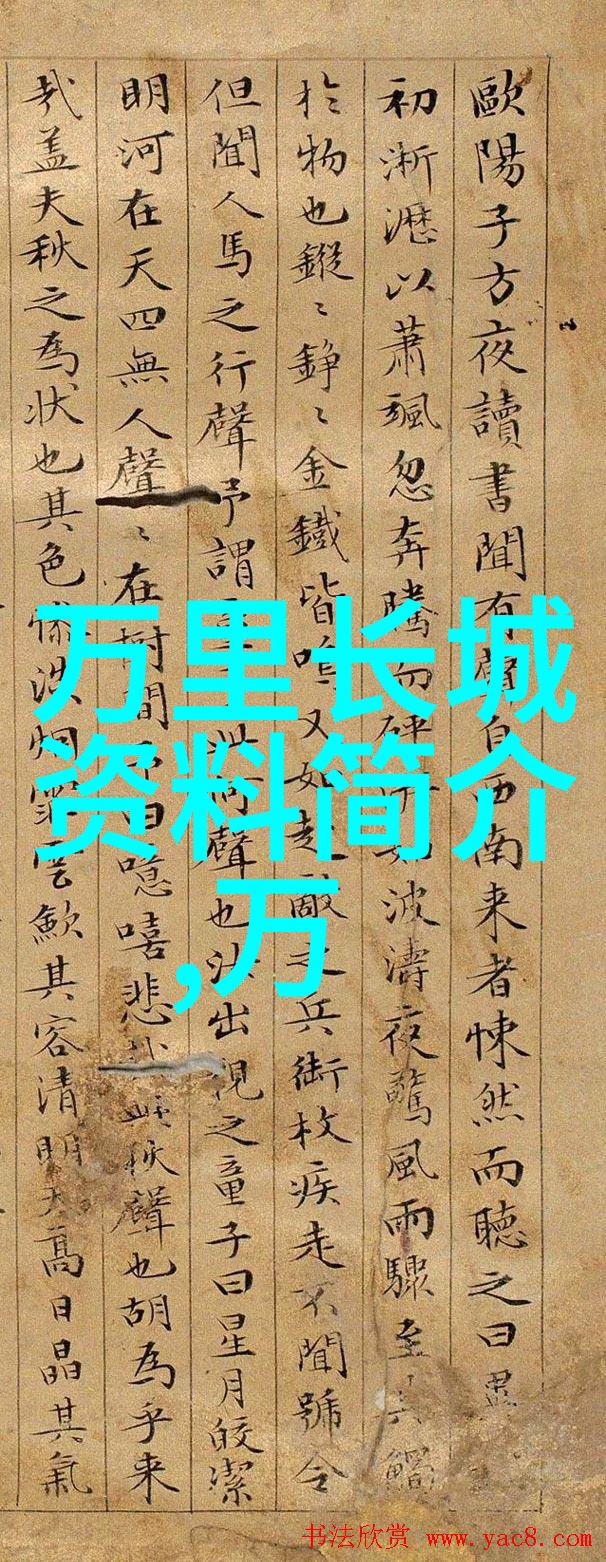 歐陽子方夜讀書聞有聲自西南来者悚然而聽之曰異
初淅瀝以蕭颯忽奔騰而砰湃如波濤夜驚風雨驟至其觸
扵物也鏦〻錚〻金鐵皆鳴又如赴敵之兵銜枚疾走不聞號令
但聞人馬之行聲予謂童子此何聲也汝出視之童子曰星月皎潔
明河在天四無人聲〻在樹間予曰噫嘻悲哉此秋聲也胡為乎来
哉盖夫秋之為状也其色慘淡烟霏雲歛其容清明天高日晶其氣
万里长城
资料简介
,万
书法欣赏 www.yac8.com